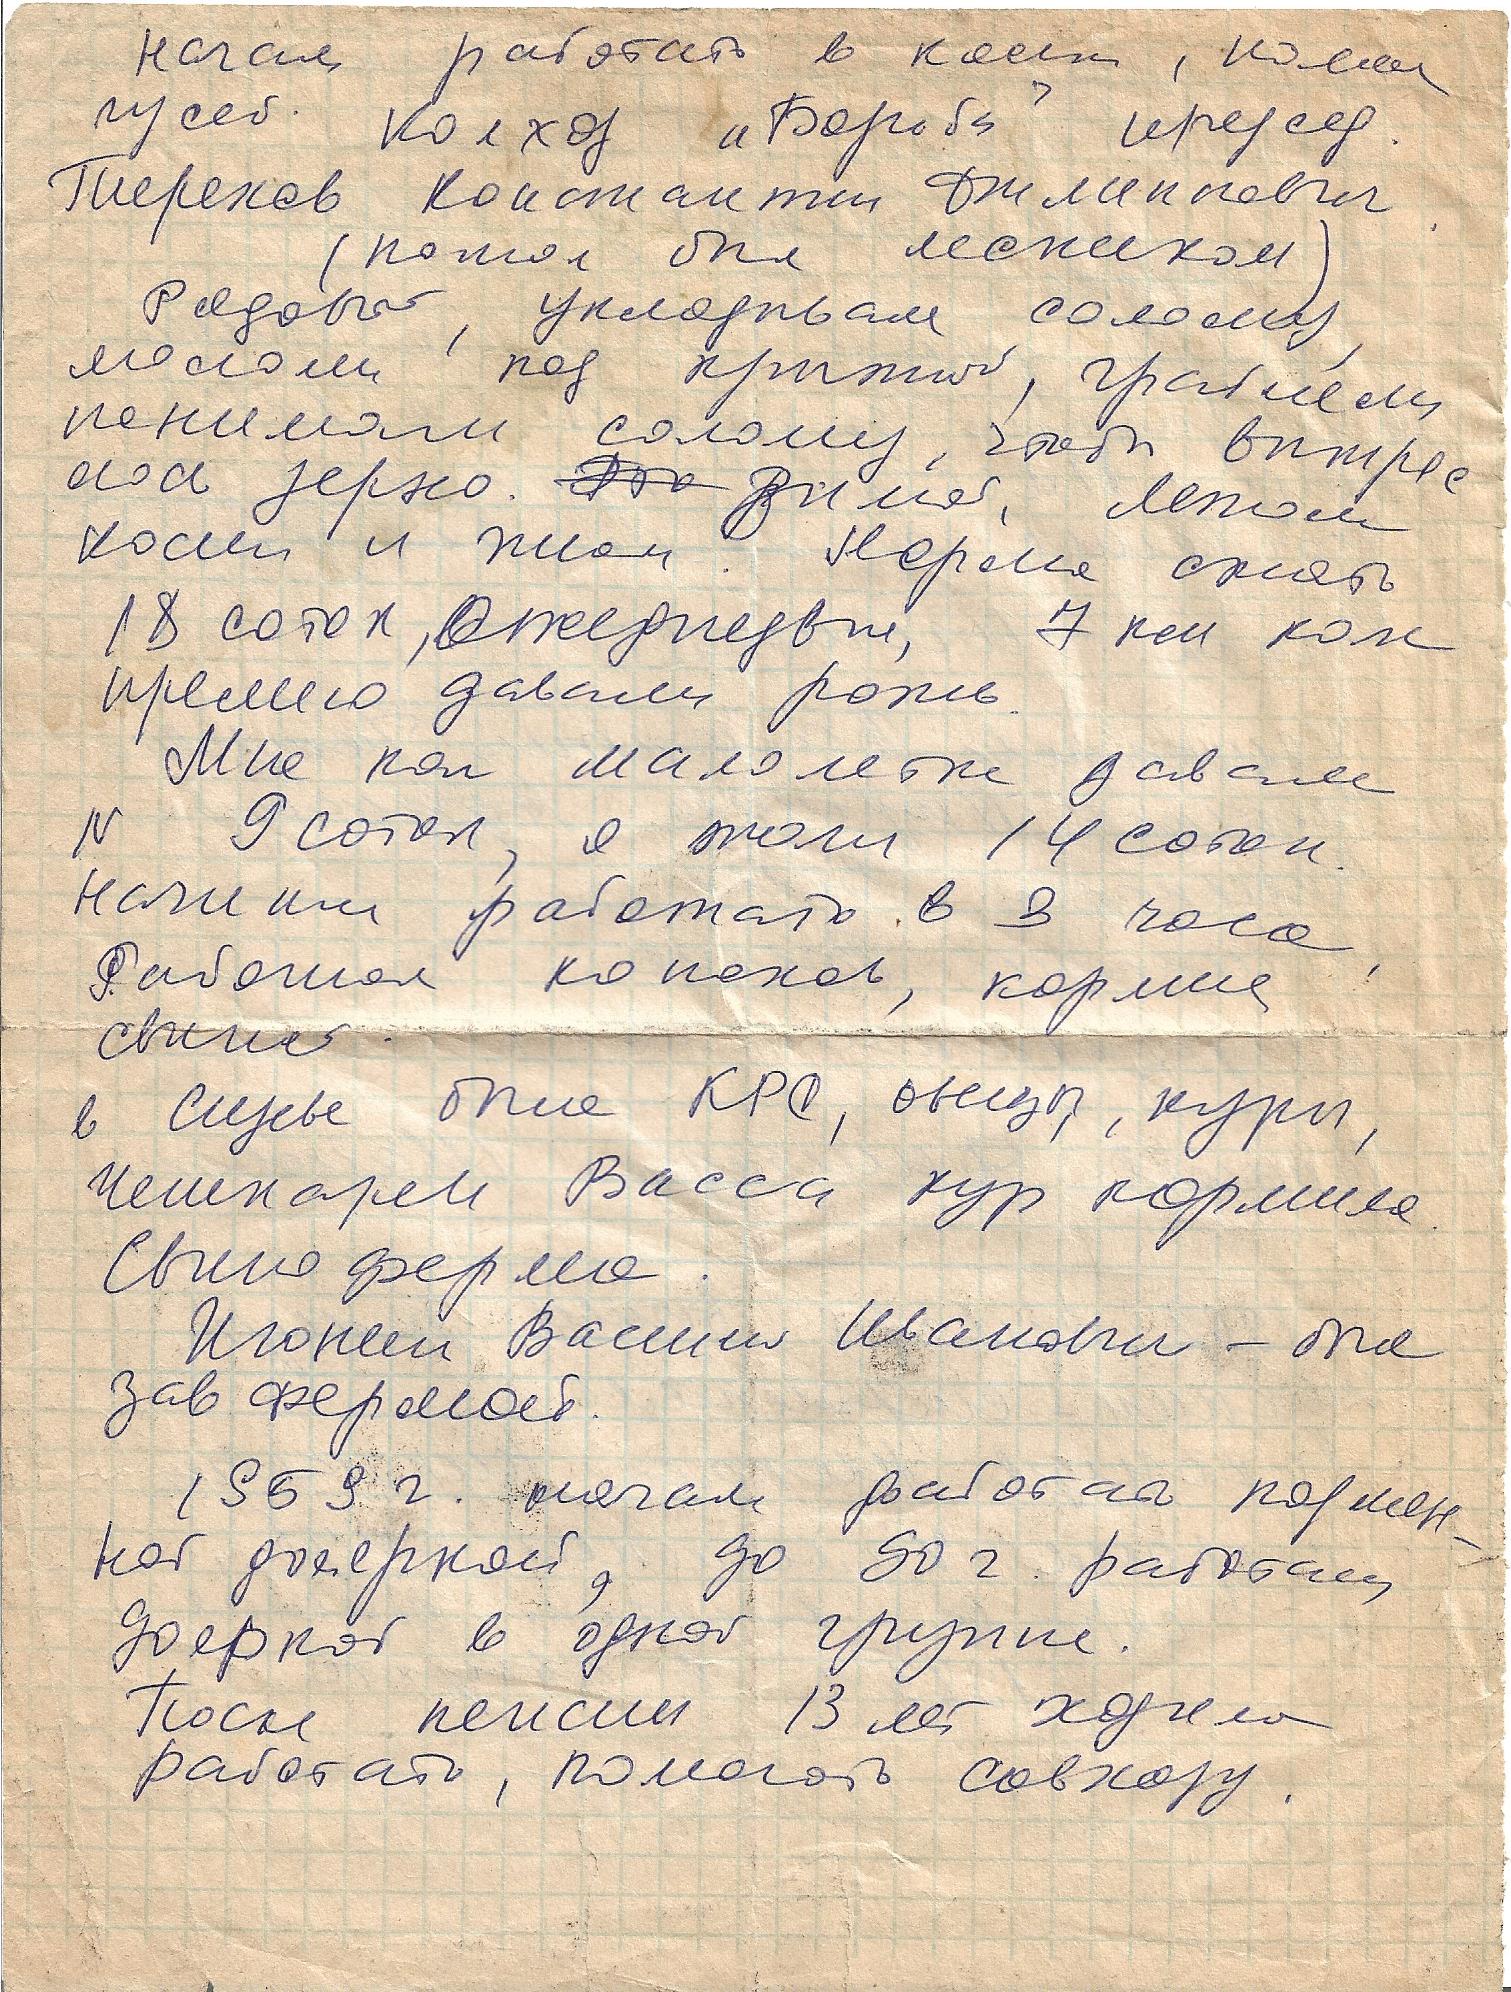 Начали работать в колх,
гусей. Колхоз "Борьба" председ.
Терехов Константин Филиппович
(потом был лесником)
Рядовой, укладывали солому,
молоти под крышей, граблями
понимали солому, чтобы вытряс
лось зерно. Зимой, Летом
косим и жнем. Норма сжать
18 соток, ежедневно, 7 кг
премию давали рожь.
Мне как малолетке давали
9 соток, я жала 14 соток.
Начинали работать в 3 часа,
Работала, кормила
свиней.
в были КРС, овцы, куры,
Васса кур кормила.
Свино ферма.
Игонин Василий Иванович - был
зав фермой.
1959 г. начала работать подмен-
ной дояркой, до 90 г. работала
дояркой в одной группе.
После пенсии 13 лет ходила
работать, помогать совхозу.